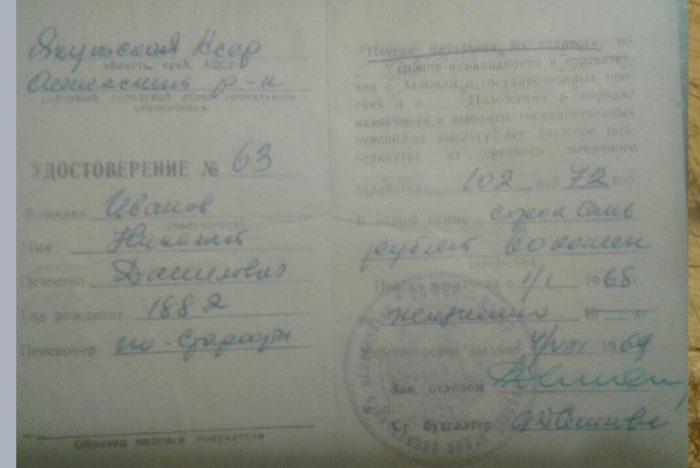 Якутская Ксср
область, край, АССР
р-н
районный, городской отдел социального
обеспечения
УДОСТОВЕРЕНИЕ № 63
Фамилия Иванов
(получателя)
Имя Николай
Отчество Данилович
Год рождения 1882
Пенсионер по старости
Образец подписи получателя
Пенсия назначена по старости, по
случаю инвалидности в соответст-
вии с Законом о государственных пен-
сиях и п. Положения о порядке
назначения и выплаты государственных
пенсий, за выслугу лет (нужное под-
черкнуть) из среднего месячного
заработка 102 руб 72 коп.
В общей сумме сорок семь
рублей 80 копеек
(прописью)
Пенсия назначена с 1/I 1968 г.
пожизненно 19 г.
Удостоверение выдано 1969
Зав. отделом
Ст. бухгалтер